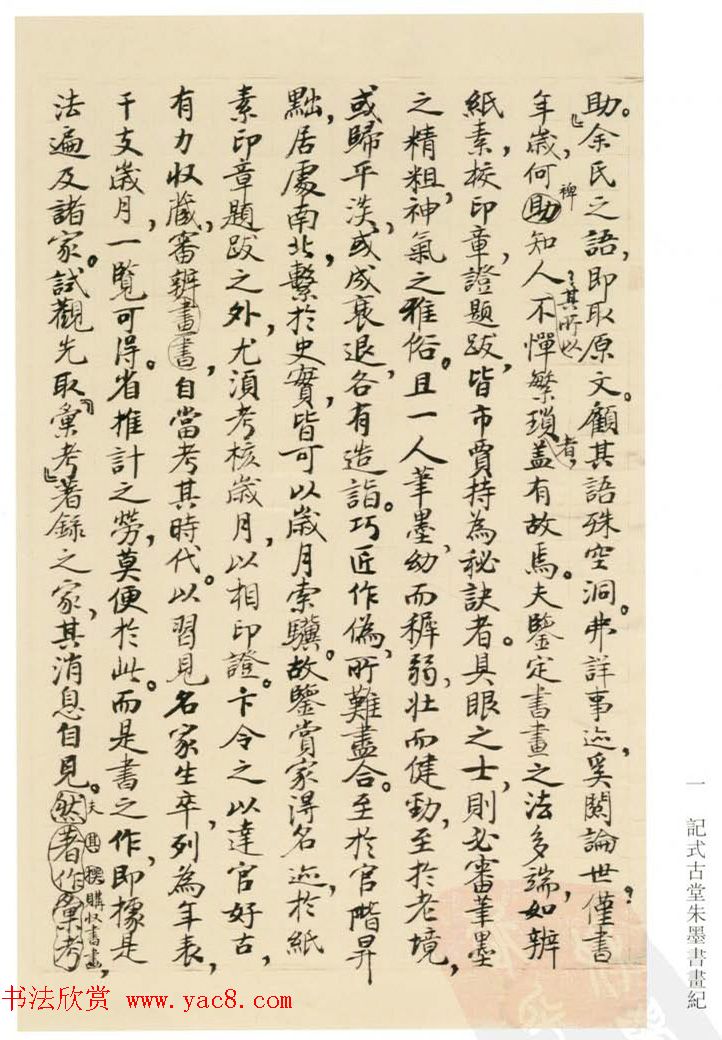 助。余氏之語，即取原文。顧其語殊空洞。弗詳事迹，奚關論世？僅書
年歲，何助裨知人？其所以不憚繁瑣者，蓋有故焉。夫鑒定書畫之法多端，如辨
紙素，校印章，證題跋，皆市賈持為秘訣者。具眼之士，則必審筆墨
之精粗，神氣之雅俗。且一人筆墨，幼而穉弱，壯而健勁，至於老境，
或歸平淡，或成衰退，各有造詣。巧匠作偽，所難盡合。至於官階昇
黜，居處南北，繫於史實，皆可以歲月索驥。故鑒賞家得名迹，於紙
素印章題跋之外，尤須考核歲月，以相印證。卞令之以達官好古，
有力收藏，審辨畫書，自當考其時代。以習見名家生卒，列為年表，
干支歲月，一覽可得。省推計之勞，莫便於此。而是書之作，即據是
法遍及諸家。試觀先取彙考著錄之家，其消息自見。然著作彙考，
夫其撰購收書畫
一 記式古堂朱墨書畫紀
书法欣赏 www.yac8.com